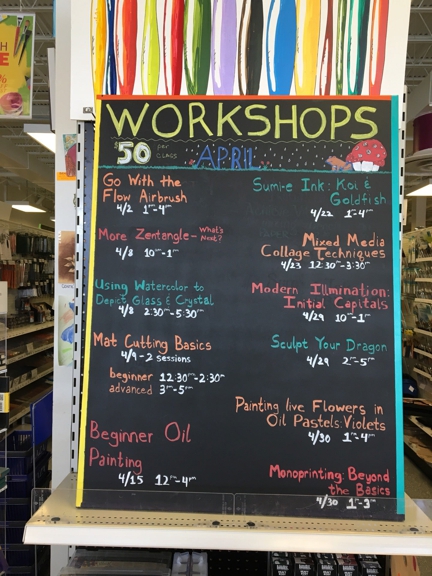 WORKSHOPS
$50 per class
APRIL
Go With the
Flow Airbrush
4/2 1pm-4pm
More Zentangle- What's
Next?
4/8 10am-1pm
Using Watercolor to
Depict Glass & Crystal
4/8 2:30pm-5:30pm
Mat Cutting Basics
4/9-2 sessions
beginner 12:30pm-2:30pm
advanced 3pm-5pm
Beginner Oil
Painting
4/15 12pm-4pm
Sumi-e Ink: Koi &
Goldfish
4/22 1pm-4pm
Mixed Media
Collage Techniques
4/23 12:30pm-3:30pm
Modern Illumination:
Initial Capitals
4/29 10am-1pm
Sculpt Your Dragon
4/29 2pm-5pm
Painting live Flowers in
Oil Pastels: Violets
4/30 1pm-4pm
Monoprinting: Beyond
the Basics
4/30 1pm-3pm